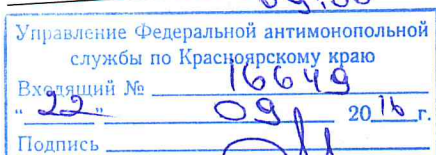 Управление Федеральной антимонопольной
службы по Красноярскому краю
Входящий № 16649
" 22 " 09 20 16 г.
Подпись